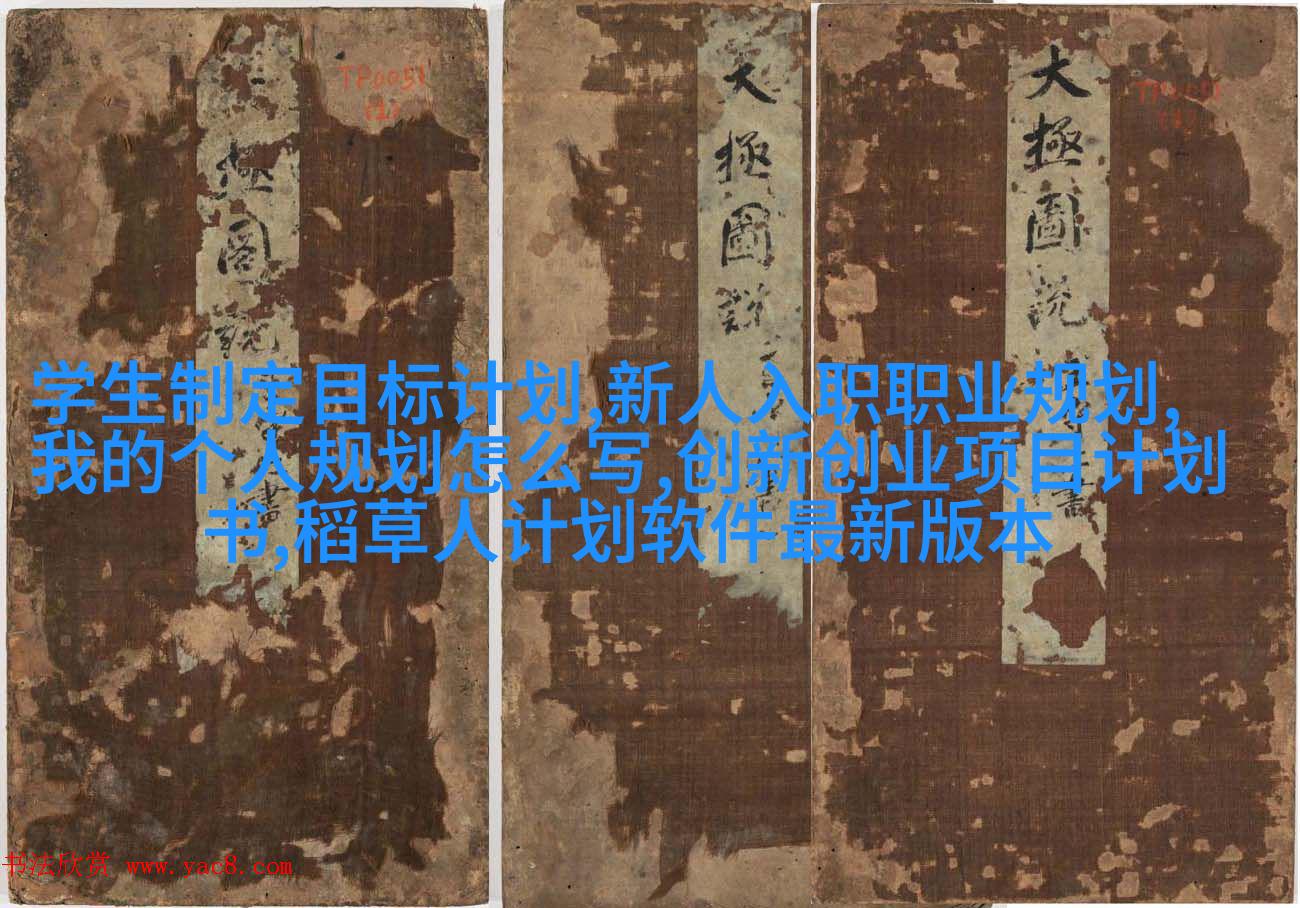 TP0051
(1)
極圖說
大極圖説
書
大極圖説
書
学生制定目标计划,新人入职职业规划,
我的个人规划怎么写,创新创业项目计划
书,稻草人计划软件最新版本
书法欣赏 www.yac8.com